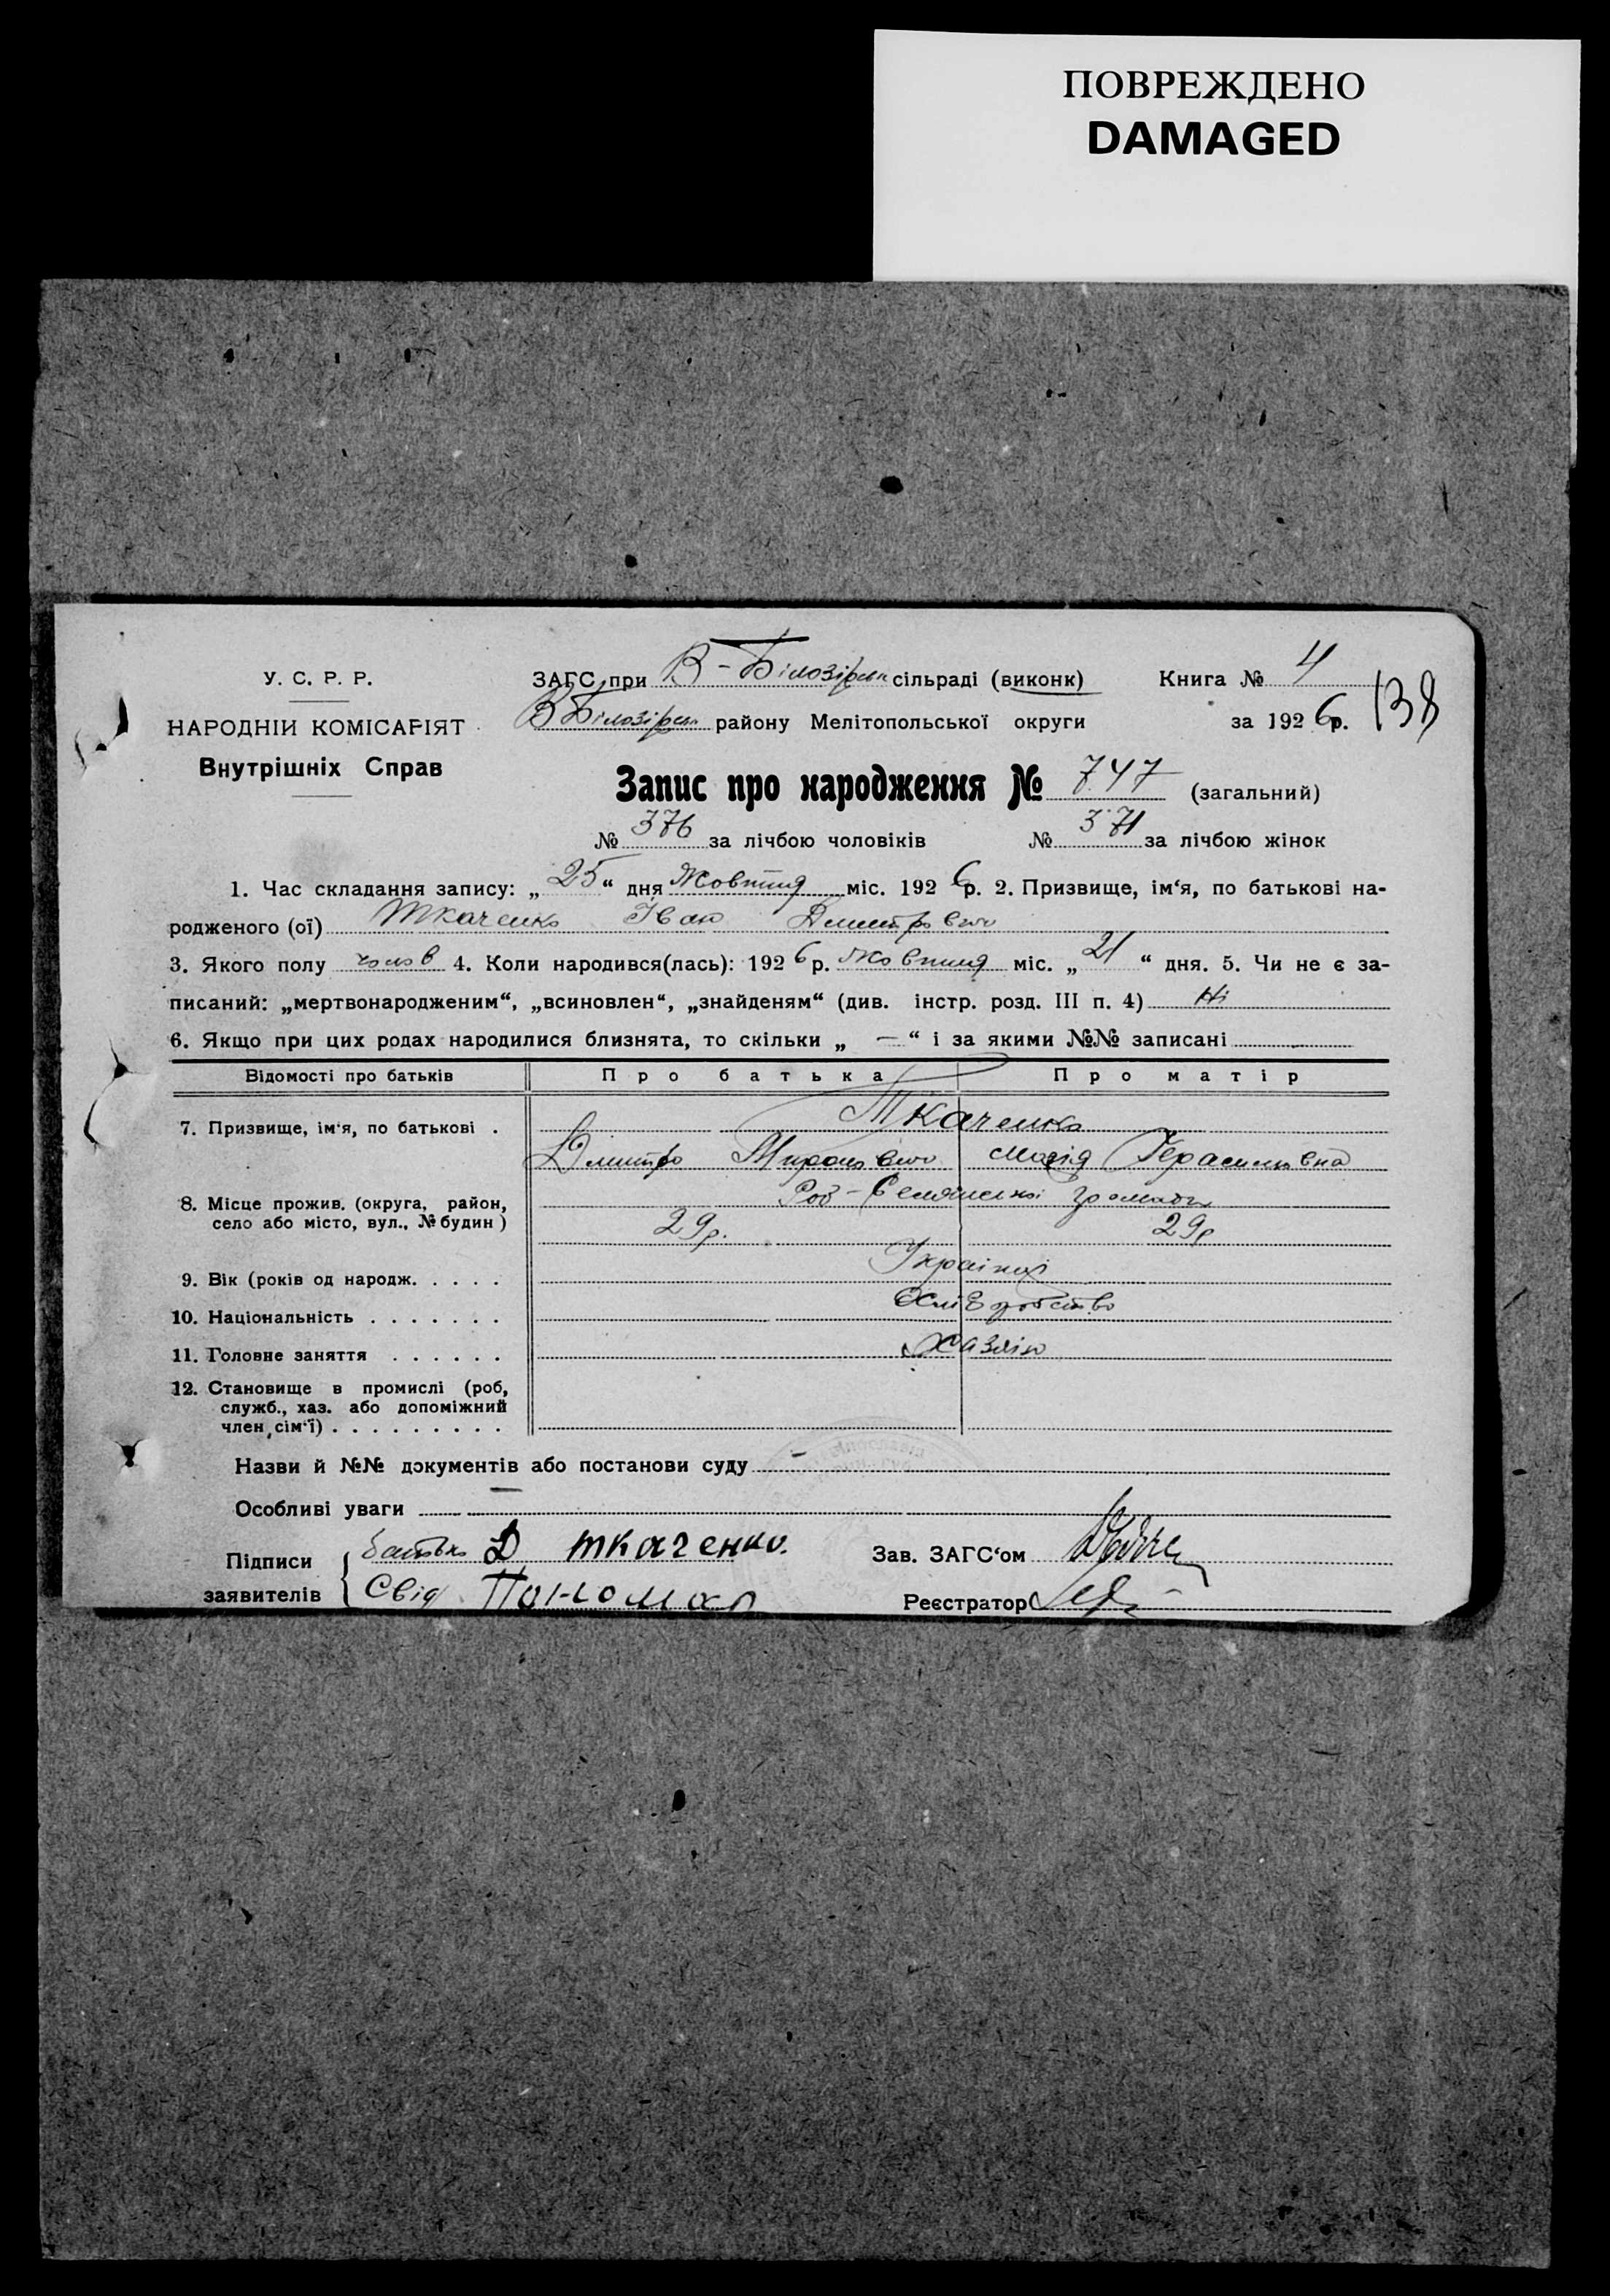 ПОВРЕЖДЕНО
DAMAGED
У. С. Р. Р.
НАРОДНІЙ КОМІСАРІЯТ
Внутрішніх Справ
ЗАГС при В-Білозірськ сільраді (виконк)
В Білозірськ району Мелітопольської округи
Книга № 4
за 1926 р.
138
Запис про народження № 747 (загальний)
№ 376 за лічбою чоловіків № 371 за лічбою жінок
1. Час складання запису: „25“ дня Жовтня міс. 1926 р. 2. Призвище, ім‘я, по батькові на-
родженого (ої) Ткаченко Іван Дмитрович
3. Якого полу чолов 4. Коли народився(лась): 1926 р. Жовтня міс. „21“ дня. 5. Чи не є за-
писаний: „мертвонародженим“, „всиновлен“, „знайденям“ (див. інстр. розд. III п. 4) Ні
6. Якщо при цих родах народилися близнята, то скільки „ — “ і за якими №№ записані
Відомості про батьків Про батька Про матір
7. Призвище, ім‘я, по батькові . Ткаченко
Дмитро Миронович Марія Герасимовна
8. Місце прожив. (округа, район,
село або місто, вул., № будин )
Роб-Селянської громади
29р. 29р
9. Вік (років од народж. . . . . Українці
10. Національність . . . . . . . Хліборобство
11. Головне заняття . . . . . . Хазяїн
12. Становище в промислі (роб,
служб., хаз. або допоміжний
член сім‘ї) . . . . . . . . .
Назви й №№ документів або постанови суду —
Особливі уваги —
Підписи
заявителів
батько Д Ткаченко.
Свід Пономар
Зав. ЗАГС‘ом
Реєстратор